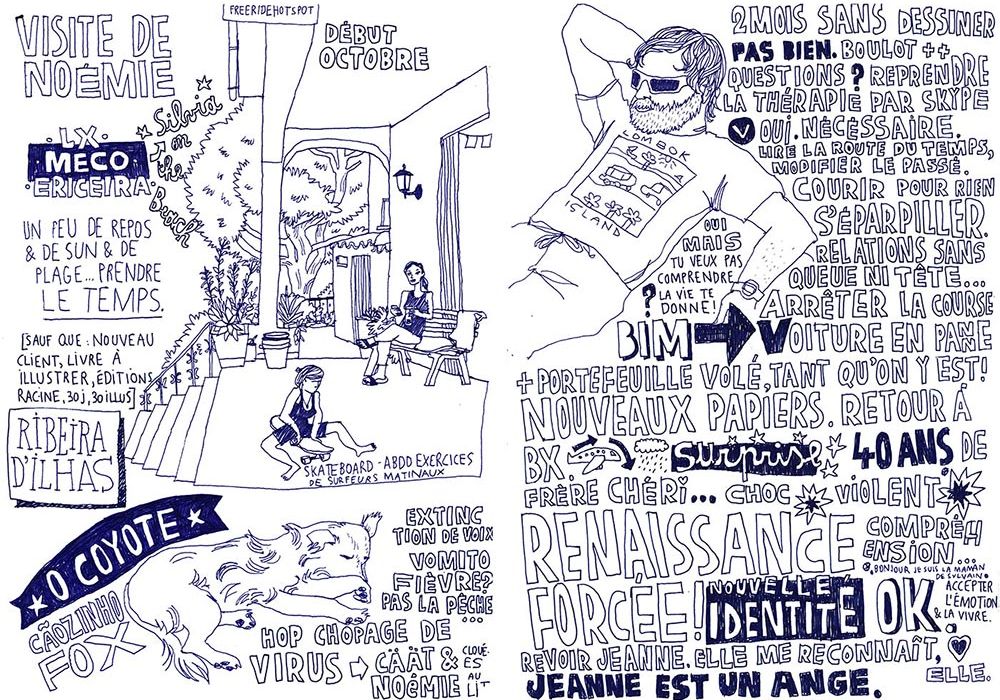 VISITE DE
NOÉMIE
FREERIDEHOTSPOT
DÉBUT
OCTOBRE
LX
MECO
ERICEIRA.
Silvia
on
the
Beach
UN PEU DE REPOS
& DE SUN & DE
PLAGE... PRENDRE
LE TEMPS.
[SAUF QUE : NOUVEAU
CLIENT, LIVRE À
ILLUSTRER, ÉDITIONS
RACINE, 30 J, 30 ILLUS]
RIBEIRA
D'ILHAS
SKATEBOARD - ABDO EXERCICES
DE SURFEURS MATINAUX
O COYOTE
CÃOZINHO
FOX
EXTINC
TION DE VOIX
VOMITO
FIÈVRE?
PAS LA PÊCHE
...
HOP CHOPAGE DE
VIRUS → CÄÄT &
NOÉMIE
CLOUÉ·
ES
AU
LIT
2 MOIS SANS DESSINER
PAS BIEN. BOULOT ++
QUESTIONS ? REPRENDRE
LA THÉRAPIE PAR SKYPE
V OUI. NÉCESSAIRE.
LIRE LA ROUTE DU TEMPS,
MODIFIER LE PASSÉ.
COURIR POUR RIEN
S'ÉPARPILLER.
RELATIONS SANS
QUEUE NI TÊTE...
ARRÊTER LA COURSE
LOMBOK
ISLAND
OUI
MAIS
TU VEUX PAS
COMPRENDRE
? LA VIE TE
DONNE!
BIM → VOITURE EN PANE
+ PORTEFEUILLE VOLÉ, TANT QU'ON Y EST!
NOUVEAUX PAPIERS. RETOUR À
BX Surprise 40 ANS DE
FRÈRE CHÉRI... CHOC VIOLENT
RENAISSANCE
FORCÉE!
COMPRÉH
ENSION...
BONJOUR JE SUIS LA MAMAN
DE SYLVAIN
NOUVELLE
IDENTITÉ OK
ACCEPTER
L'ÉMOTION
& LA VIVRE.
REVOIR JEANNE. ELLE ME RECONNAÎT,
ELLE.
JEANNE EST UN ANGE.